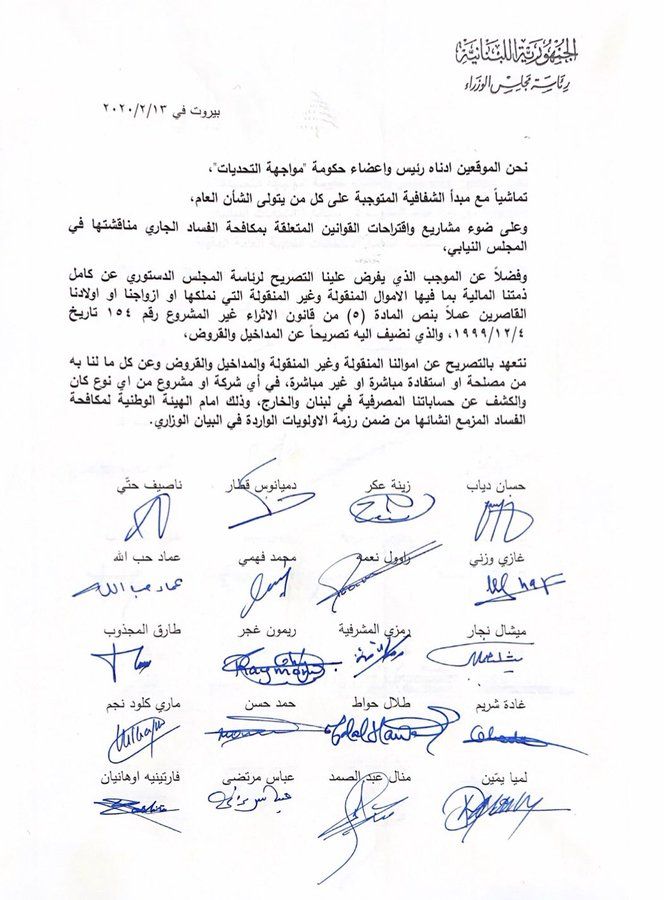 الجمهورية اللبنانية
رئاسة مجلس الوزراء
بيروت في ٢٠٢٠/٢/١٣
نحن الموقعين ادناه رئيس واعضاء حكومة "مواجهة التحديات"،
تماشياً مع مبدأ الشفافية المتوجبة على كل من يتولى الشأن العام،
وعلى ضوء مشاريع واقتراحات القوانين المتعلقة بمكافحة الفساد الجاري مناقشتها في
المجلس النيابي،
وفضلاً عن الموجب الذي يفرض علينا التصريح لرئاسة المجلس الدستوري عن كامل
ذمتنا المالية بما فيها الاموال المنقولة وغير المنقولة التي نملكها او ازواجنا او اولادنا
القاصرين عملاً بنص المادة (٥) من قانون الاثراء غير المشروع رقم ١٥٤ تاريخ
١٩٩٩/١٢/٤، والذي نضيف اليه تصريحاً عن المداخيل والقروض،
نتعهد بالتصريح عن اموالنا المنقولة وغير المنقولة والمداخيل والقروض وعن كل ما لنا به
من مصلحة او استفادة مباشرة او غير مباشرة، في أي شركة او مشروع من اي نوع كان
والكشف عن حساباتنا المصرفية في لبنان والخارج، وذلك امام الهيئة الوطنية لمكافحة
الفساد المزمع انشائها من ضمن رزمة الاولويات الواردة في البيان الوزاري.
حسان دياب زينة عكر دميانوس قطار ناصيف حتّي
غازي وزني راوول نعمه محمد فهمي عماد حب الله
عماد حب الله
ميشال نجار رمزي المشرفية ريمون غجر طارق المجذوب
Raymond
غادة شريم طلال حواط حمد حسن ماري كلود نجم
Talal Hawat
لميا يمّين منال عبد الصمد عباس مرتضى فارتينيه اوهانيان
عباس مرتضى